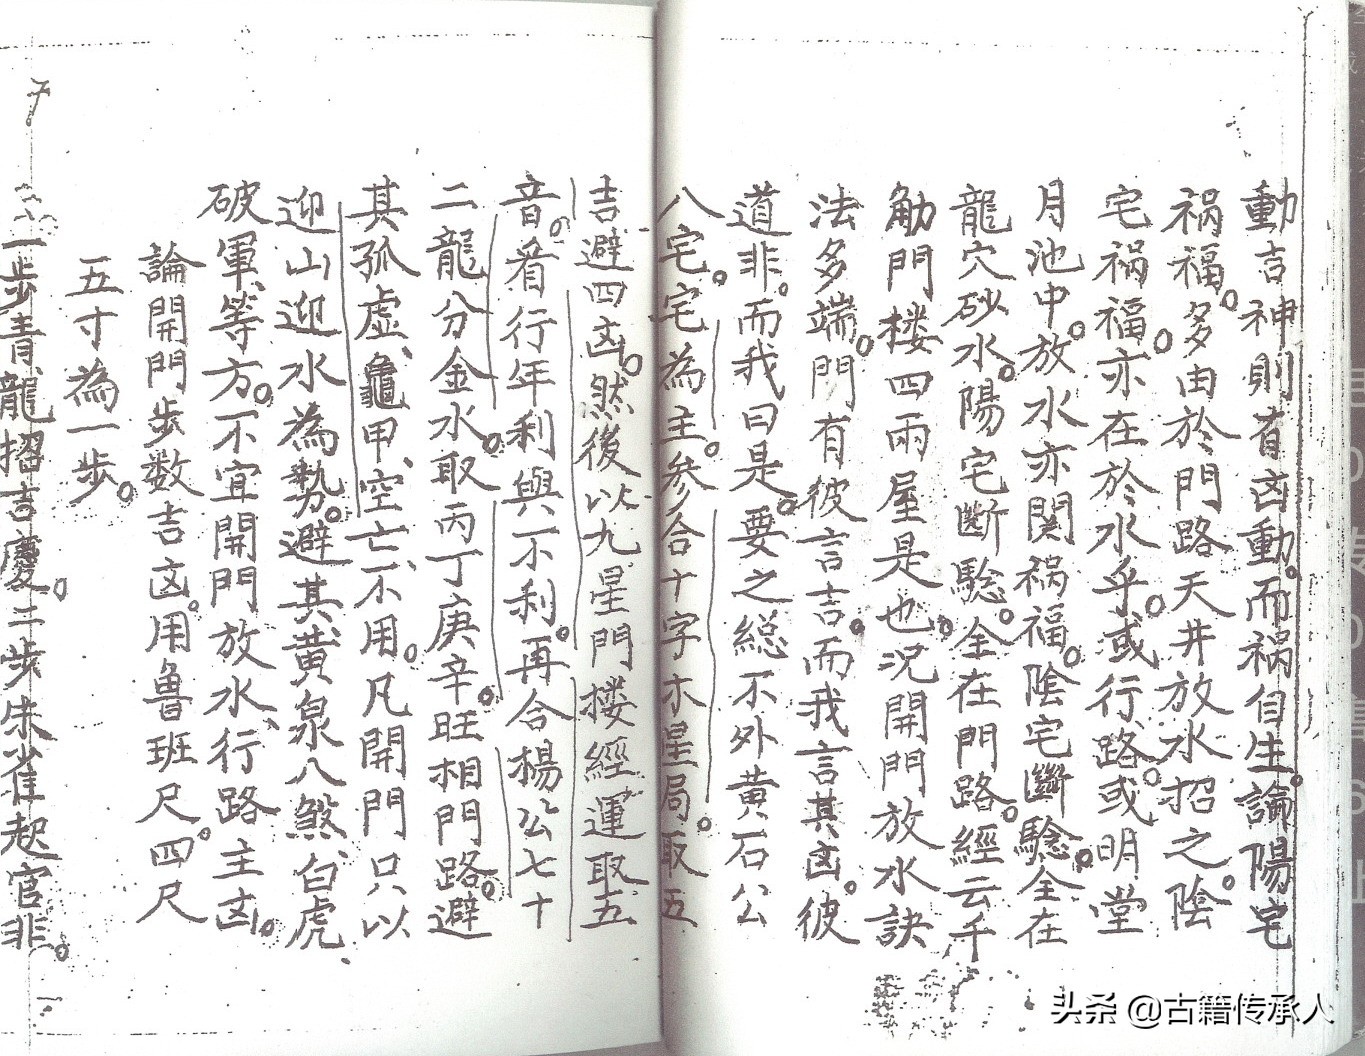 動吉神則有凶動。而禍自生。論陽宅
禍福。多由於門路天井放水招之。陰
宅禍福。亦在於水乎。或行路。或明堂
月池中。放水亦関禍福。陰宅斷驗。全在
龍穴砂水。陽宅斷驗。全在門路。經云千
觔門楼四兩屋是也。况開門放水訣
法多端。門有彼言吉。而我言其凶。彼
道非。而我曰是。要之総不外黃石公
八宅。宅為主。参合十字木星局。取五
吉避四凶。然後以九星門楼經運取五
音。看行年利與不利。再合楊公七十
二龍分金水。取丙丁庚辛旺相門路。避
其孤虛、龜甲、空亡、不用。凡開門只以
迎山迎水為勢。避其黃泉八煞、白虎、
破軍、等方。不宜開門放水、行路主凶。
論開門步数吉凶。用魯班尺。四尺
五寸為一步。
一步青龍招吉慶。二步朱雀起官非。
头条 @古籍传承人